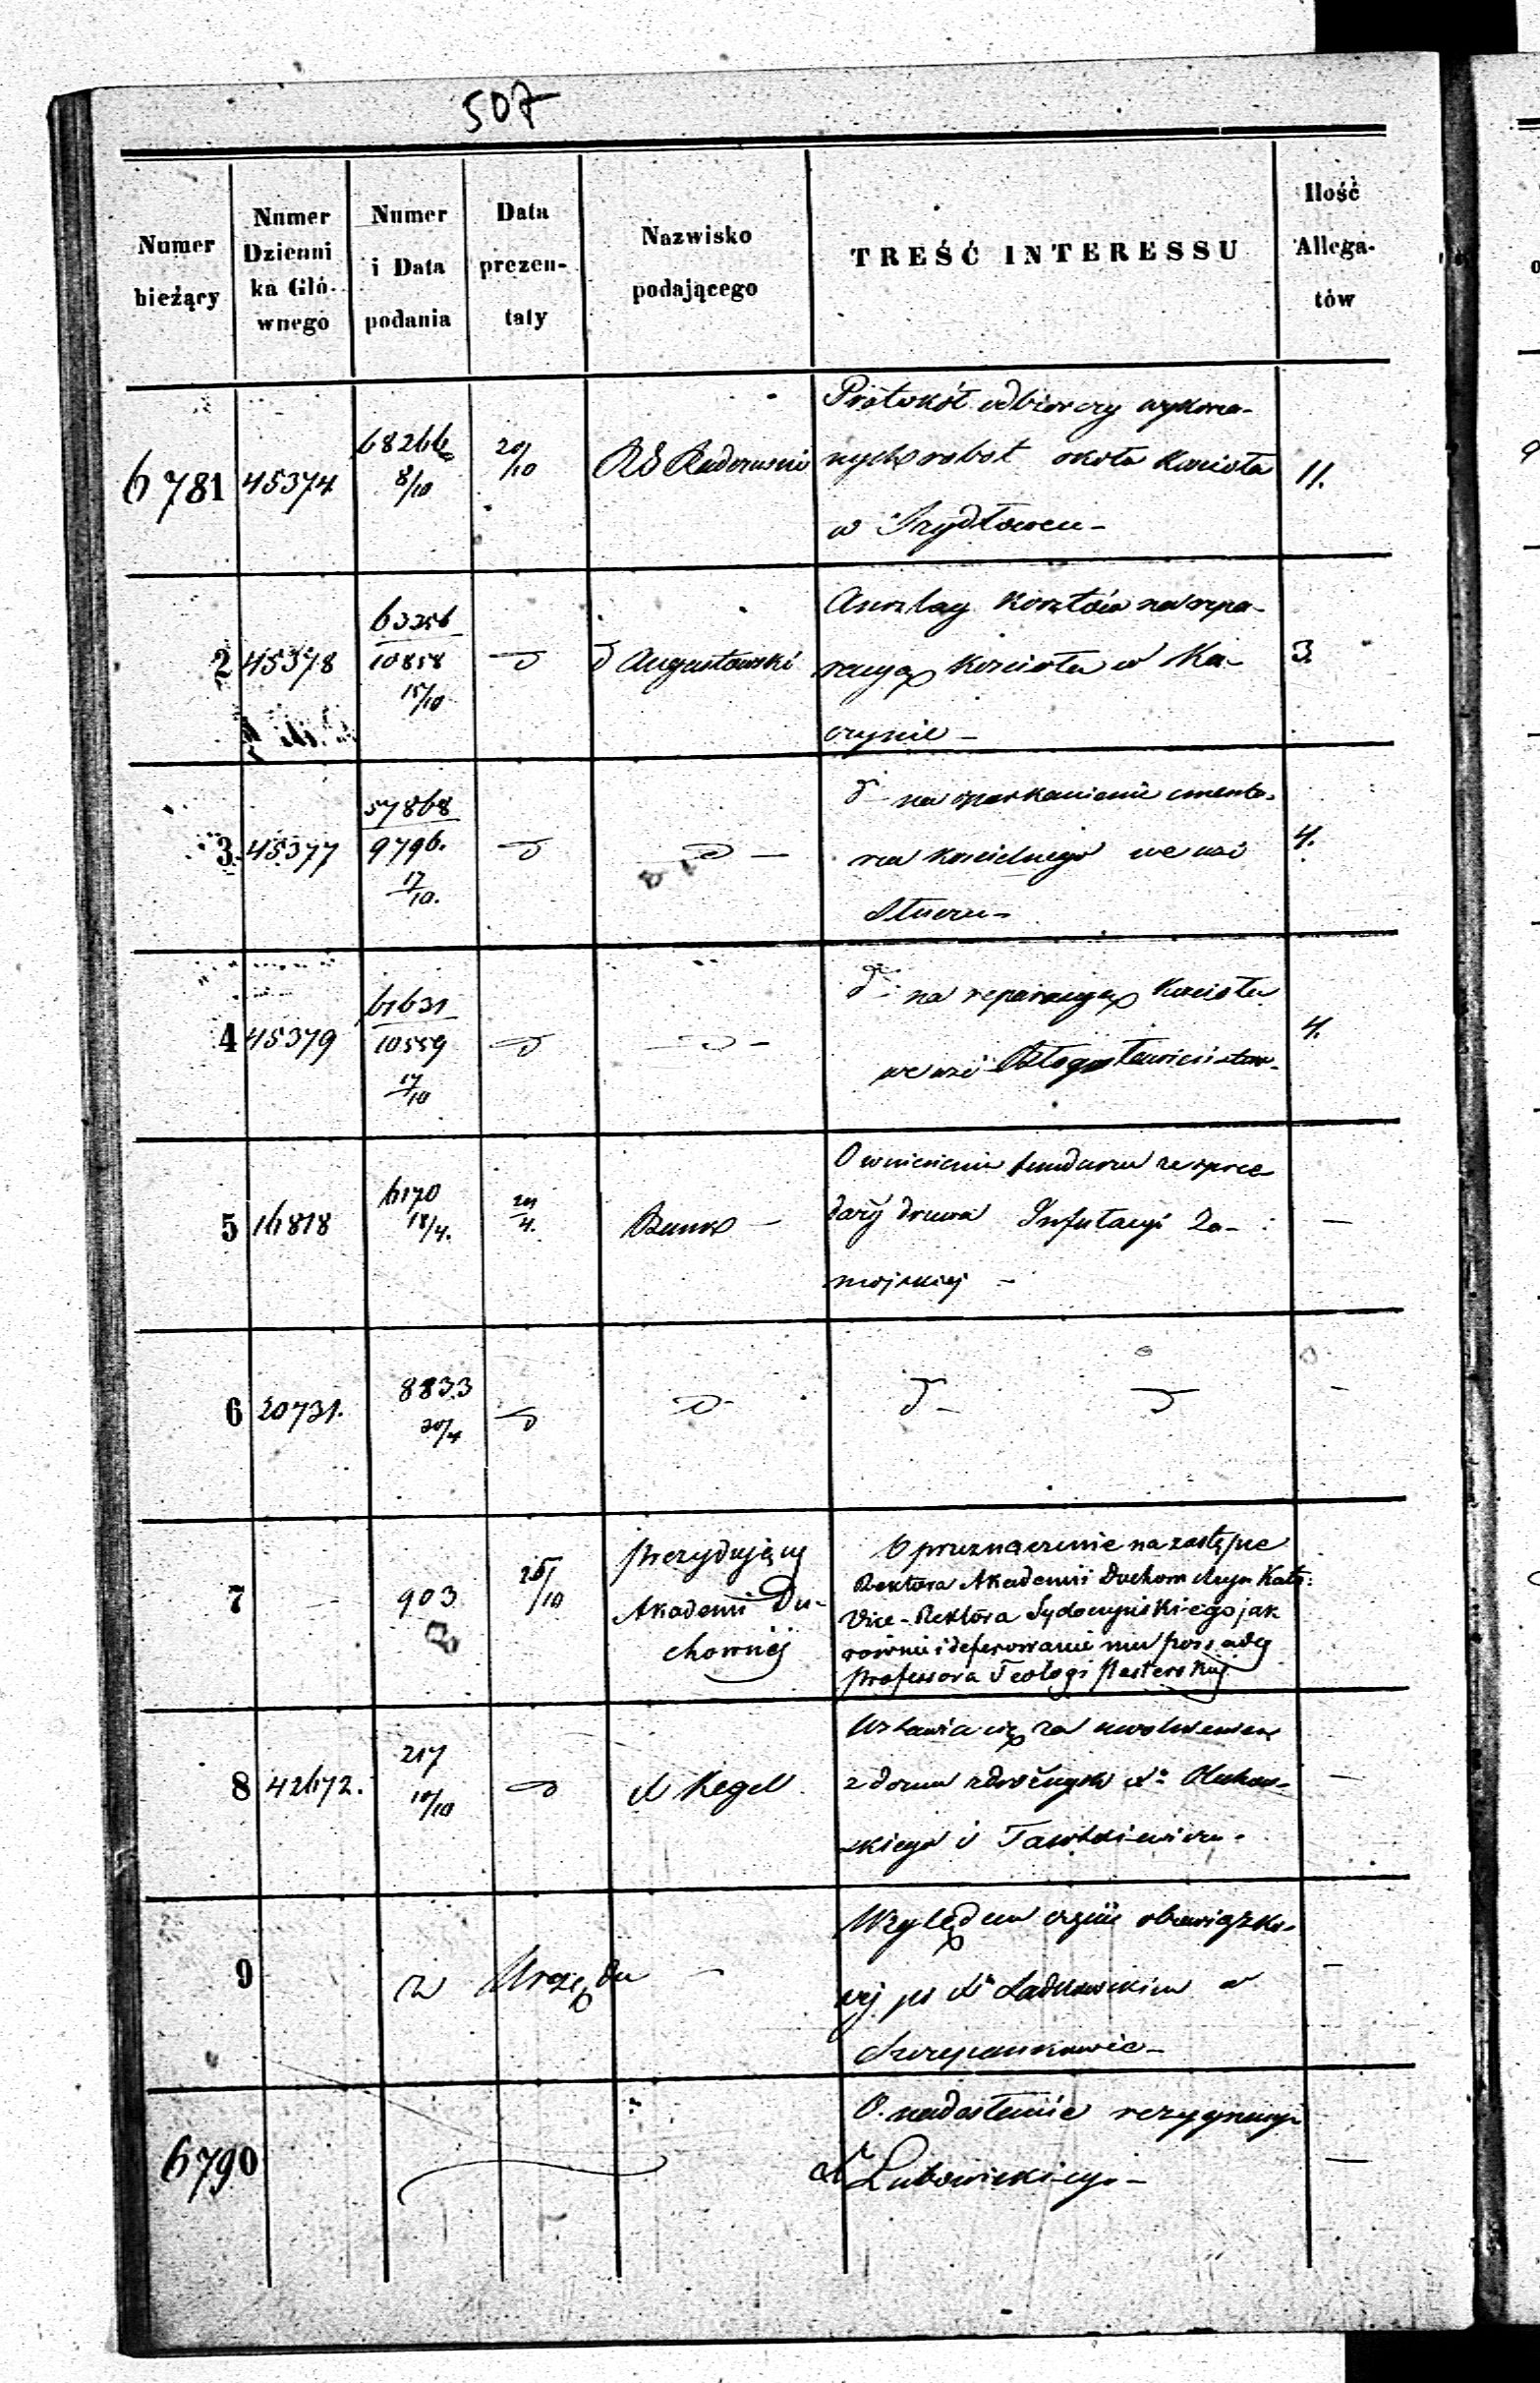 507
Numer bieżący
Numer Dzienni ka Głó- wnego
Numer i Data podania
Data prezen- taty
Nazwisko podającego
TREŚĆ INTERESSU
Ilość Allega- tów
6781 45374 68266 8/10 20/10 Radomski 11.
Protokół odbiorczy wykona-
nych robot około Kościoła
w Szydłowcu -
2 45378 63256 10858 15/10 d Augustowski 3.
Anszlag kosztów na repa-
racyą Kościoła w Ka-
czynie -
3 45377 57868 9796. 17/10. 4.
d na oparkanienie cmenta-
rza kościelnego we wsi
4 45379 61631 10559 17/10 4.
d na reparacyą Kościoła
we wsi
5 16818 6170 18/4. 21/4. Bank - -
O wniesienie funduszu ze sprze
daży drzewa Infułacyi Za-
mojskiej -
6 20731. 8833 20/4 d d - d d -
7 903 25/10
Prezydujący
Akademii Du-
chownéj
O przeznaczenie na zastępce
Rektora Akademii Duchow
Vice-Rektora jak
rownie i deferowanie mu possady
Professora Teologi Pasterskiej
8 42672. 217 10/10 d X Kegel -
Wstawia się za uwolnieniem
z domu zdrożnych Xa
skiego i
9 z Urzędu - -
Względem obowiązko-
wej po Xa w
6790 -
O nadesłanie rezygnacyi
X Lubowickiego -